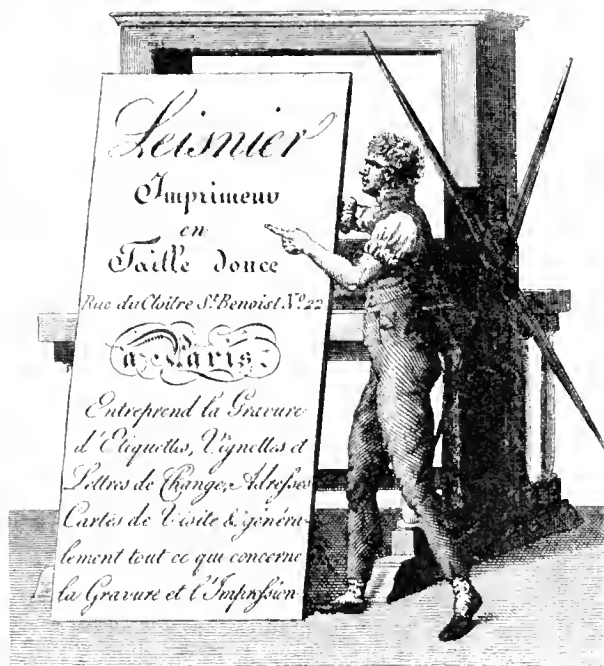 Leisnier
Imprimeur
en
Taille douce
Rue du Cloitre St. Benoist No. 22
a Paris.
Entreprend la Gravure
d'Etiquettes, Vignettes et
Lettres de Change, Adresses
Cartes de Visite & généra-
lement tout ce qui concerne
la Gravure et l'Impression